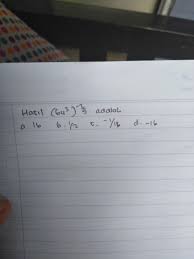 Hasil (64²)^-⅔ adalah
a. 16 b. 1/12 c. -1/16 d. -16